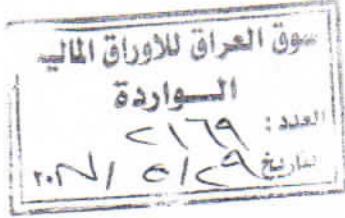 سوق العراق للاوراق المالية
الـــواردة
العدد : ٢١٦٩
التاريخ ٢٩ / ٥ /